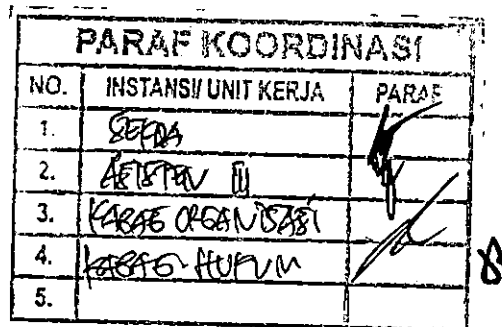 PARAF KOORDINASI
NO. INSTANSI/ UNIT KERJA PARAF
1. SEKDA
2. ASISTEN III
3. KABAG ORGANISASI
4. KABAG HUKUM
5.